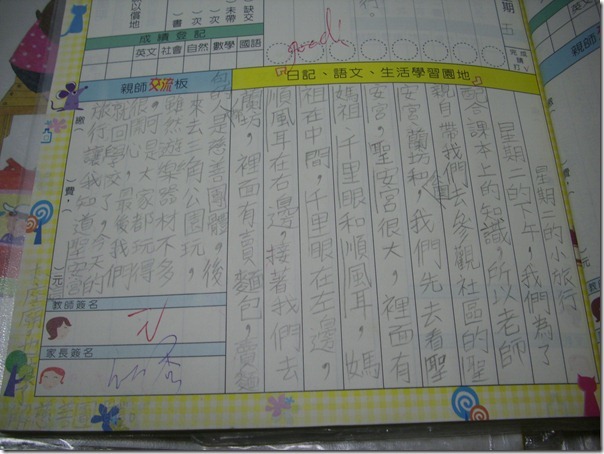 以信地
書）
次）
次）
未帶
缺交
期
五
行。
完成請打
成績登記
英文
社會
自然
數學
國語
good
親師交流板
日記、語文、生活學習園地
星期二的小旅行
星期二的下午，我們為了
合課本上的知識，所以老師
親自帶我們去參觀社區的聖
安宮、蘭坊和，我們先去看聖
安宮，聖安宮很大，裡面有
媽祖、千里眼和順風耳，媽
祖在中間，千里眼在左邊，
順風耳在右邊，接著我們去
蘭坊，裡面有賣麵包，賣麵
包的是慈善團體，後
來去三角公園玩，
雖然遊樂器材不多
，可是大家都玩得
很開心，最後我們
就回學校了，今天的
旅行讓我知道聖安宮
繳（
）費，（
）元
教師簽名
家長簽名